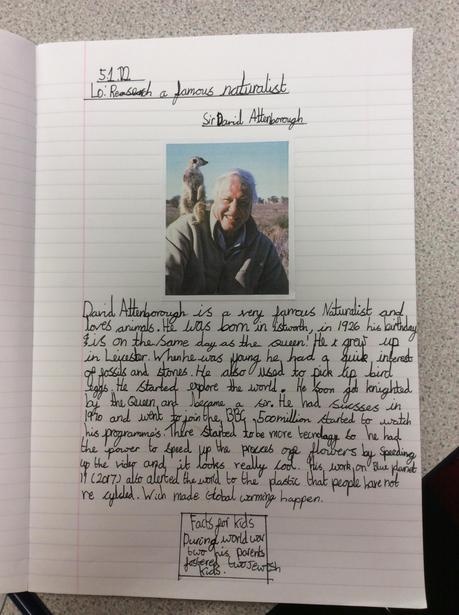 5.1.
Lo: Research a famous naturalist
Sir David Attenborough
David Attenborough is a very famous Naturalist and
loves animals. He was born in istworth, in 1926 his birthday
is on the same day as the queen! He grew up
in Leicester. When he was young he had a quick interest
of fossils and stones. He also used to pick up bird
eggs. He started explore the world. He soon got knighted
by the Queen, and became a sir. He had sucsses in
and went to join the, BBC, 500million started to watch
his programme's. There started to be more tecnology so he had
the power to speed up the process of flowers by speeding
up the video and it looks really cool. His work, on Blue planet
(2017) also alerted the world to the plastic that people have not
re cylded. Wich made Global worming happen.
Facts for kids
During world war
two his parents
fostered two Jewish
kids.